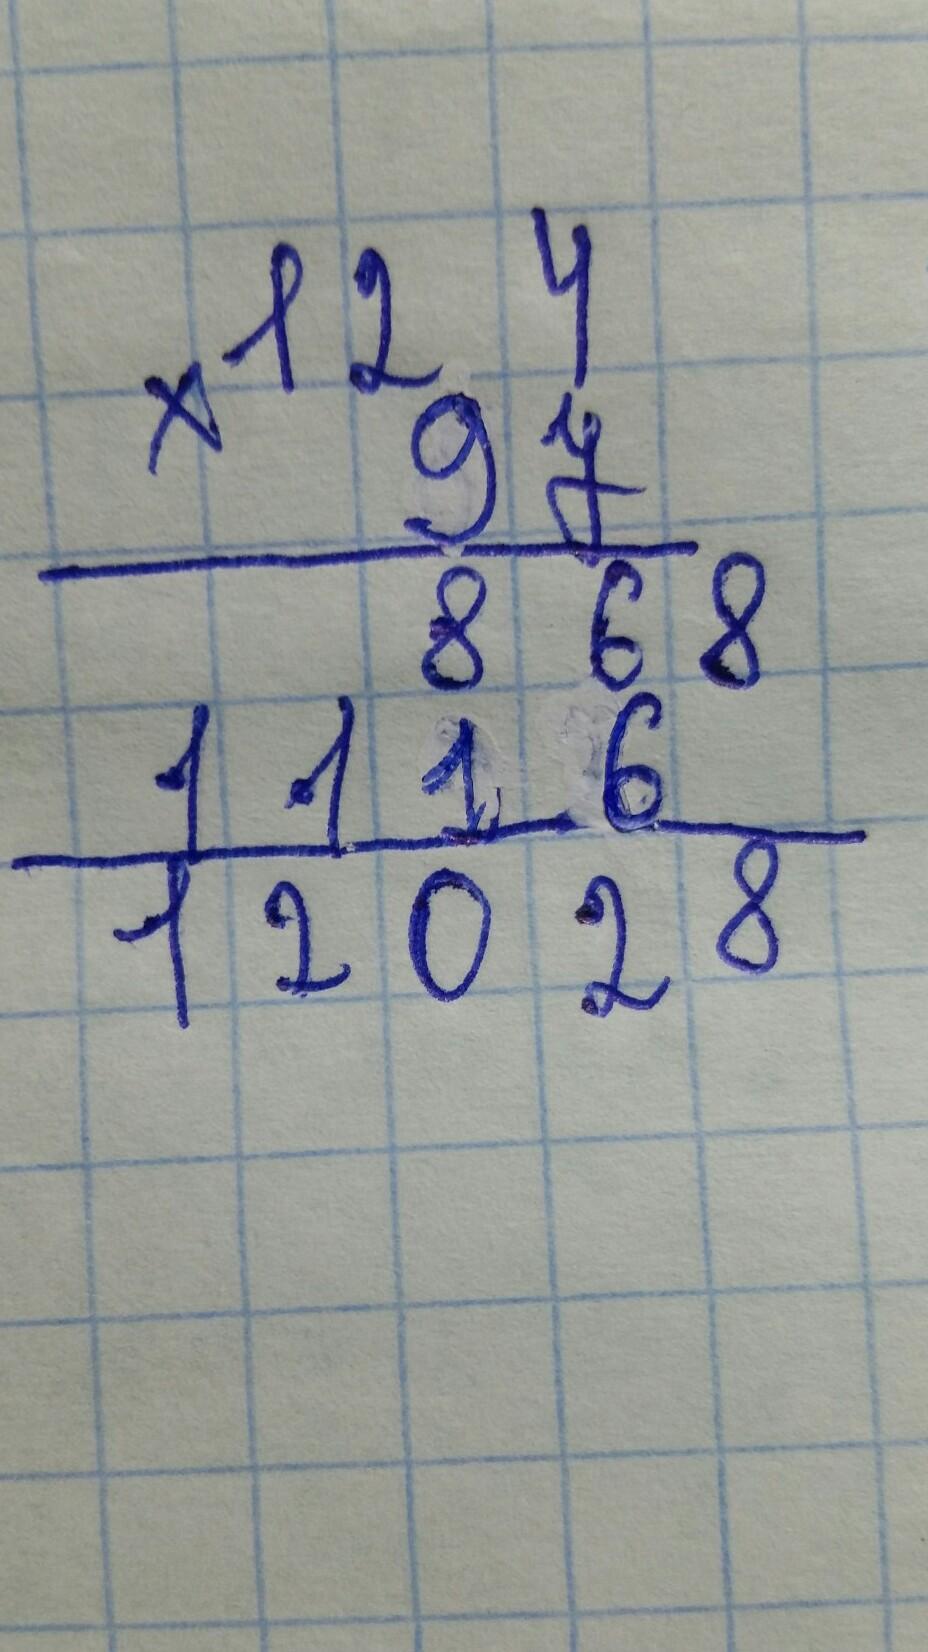 ×124
97
868
1116
12028